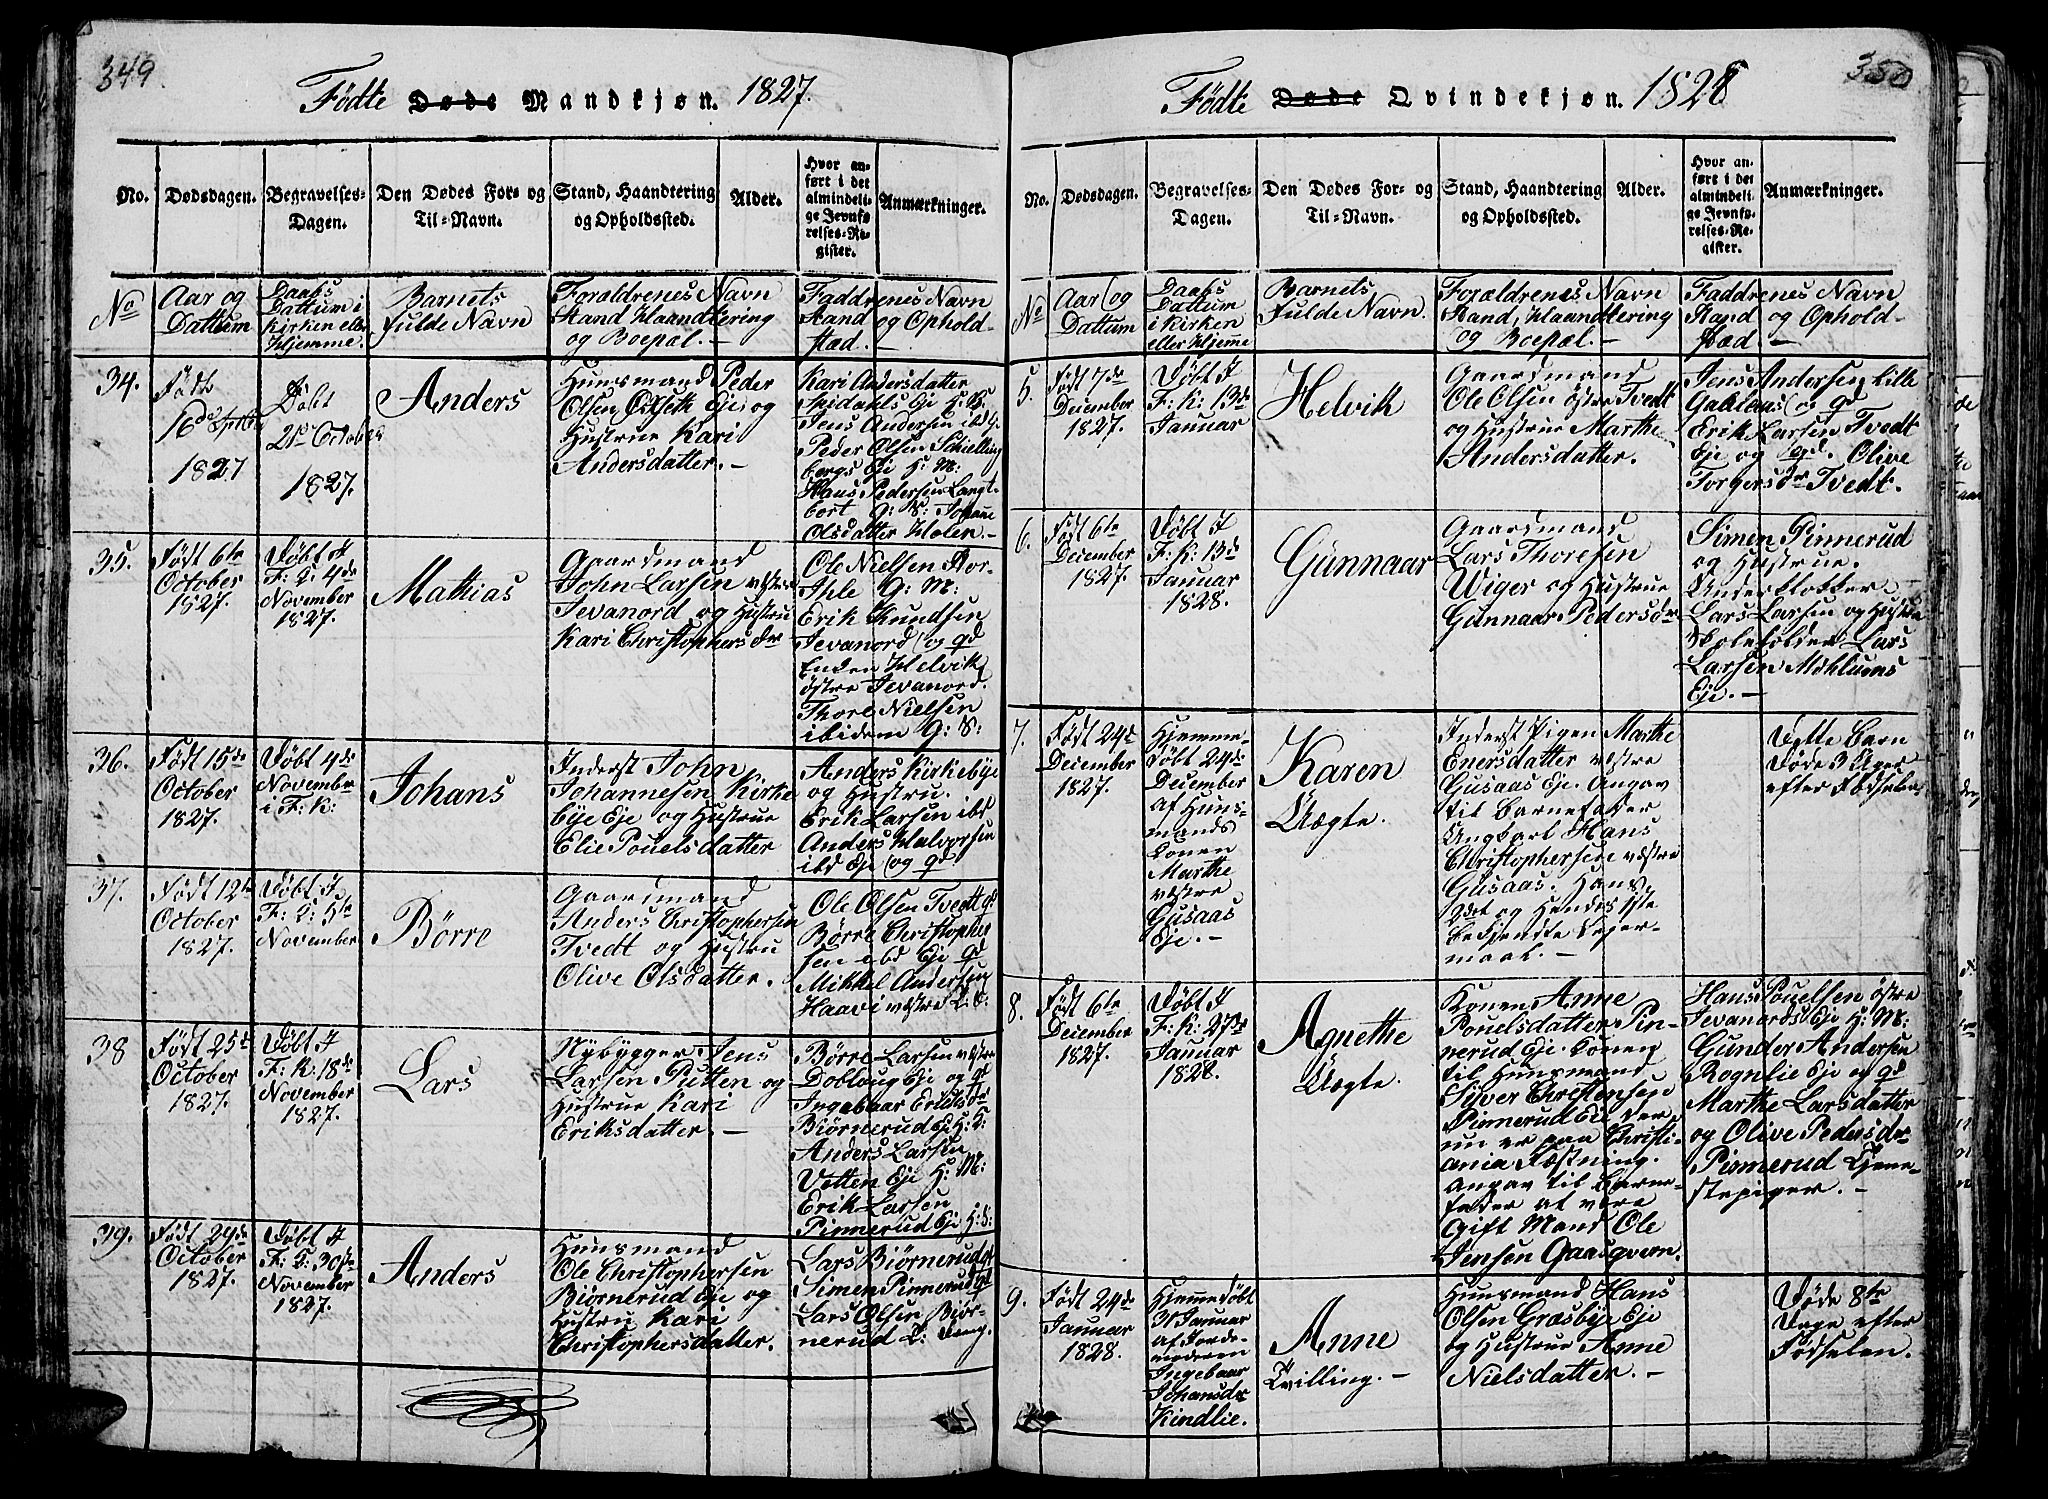 349.
Födte Døde Mandkjøn. 1827.
No.
Dødsdagen.
Begravelses-
Dagen.
Den Dødes For- og
Til-Navn.
Stand, Haandtering
og Opholdssted.
Alder.
Hvor an-
ført i det
almindeli-
ge Jevnfø-
relses-Re-
gister.
Anmærkninger.
No
Aar og
Dattum
Daabs
Dattum i
Kirken eller
Hjemme.
Barnets
fulde Navn
Forældrenes Navn
Stand Haandtering
og Boepæl. -
Faddrenes Navn
Stand og Ophold-
stæd. -
34.
Födt
16de
1827
Döbt
21de October
1827.
Anders
Huusmand Peder
Olsen Eje og
Hustrue Kari
Andersdatter. -
Kari Andersdatter
Eje H: K:
Jens Andersen ibd
Peder Olsen Schielling
bergs Eje H: M:
Hans Pedersen Langt-
bort G: S: Johane
Olsdatter Holen -
35.
Födt 6te
October
1827.
Döbt I
F: K: 4de
November
1827.
Mathias
Gaardmand
John Larsen væstre
Jevanord og Hustru
Kari Christophersdr
Ole Nielsen Nor-
Ihle G: M:
Erik Knudsen
Jevanord og qd
Enken Helvik
östre Jevanord.
Thore Nielsen
ibidem G: S:
36.
Födt 15de
October
1827.
Döbt 4de
November
i F: K:
Johans
Inderst John
Johannesen Kirke
bye Eje og Hustrue
Elie Pouelsdatter
Anders Kirkebye
og Hustru.
Erik Larsen ibd
Anders Halvorsen
ibd Eje og qd
37.
Födt 12te
October
1827.
Döbt I
F: K: 4te
November
Börre
Gaardmand
Anders Christophersen
Tvedt og Hustru
Olive Olsdatter.
Ole Olsen Tvedt qd
Börre Christopher
sen ibd Eje qd
Mikkel Andersen
Haavi væstre
38
Födt 25de
October
1827.
Döbt I
F: K: 18de
November
1827.
Lars
Nybygger Jens
Larsen Putten og
Hustrue Kari
Eriksdatter. -
Börre Larsen væstre
Dobloug Eje og qd
Ingebaar Eriksdr
Biörnerud Eje H: K:
Anders Larsen
Vetten Eje H: M:
Erik Larsen
Pinnerud Eje H: S:
39.
Födt 29de
October
1827.
Döbt I
F: K: 30te
November
1827.
Anders
Huusmand
Ole Christophersen
Biörnerud Eje og
Hustru Kari
Christophersdatter.
Lars Biörnerud qd
Simen Pinnerud qd
Lars Olsen Biör-
nerud
350
Födte Døde Qvindekjøn. 1828
No.
Dødsdagen.
Begravelses-
Dagen.
Den Dødes For- og
Til-Navn.
Stand, Haandtering
og Opholdssted.
Alder.
Hvor an-
ført i det
almindeli-
ge Jevnfø-
relses-Re-
gister.
Anmærkninger.
No
Aar og
Dattum
Daabs
Dattum
i Kirken
eller Hjemme
Barnets
fulde Navn.
Forældrenes Navn
Stand, Haandtering
og Boepæl. -
Faddrenes Navn
Stand og Ophold-
stæd -
5.
Födt 7de
December
1827.
Döbt I
F: K: 13de
Januar
Helvik
Gaardmand
Ole Olsen östre Tvedt
og Hustrue Marthe
Andersdatter.
Jens Andersen lille
og qd
Erik Larsen Tvedt
Eje og qd. Olive
Torgersdr Tvedt.
6.
Födt 6te
December
1827.
Döbt I
F: K: 13de
Januar
1828.
Gunnaar
Gaardmand
Lars Thoresen
Wiger og Hustrue
Gunnaar Pedersdr
Simen Pinnerud
og Hustrue.
Underklokker
Lars Larsen og Hustrue
Skoleholder Lars
Larsen Mæhlums
Eje. -
7.
Födt 24de
December
1827.
Hjemme-
döbt 24de
December
af Huus-
mands
Konen
Marthe
væstre
Gusaas
Eje. -
Karen
Uægte.
Inderst Pigen Marthe
Enersdatter væstre
Gusaas Eje. Angav
til Barnefader
Ungkarl Hans
Christophersen væstre
Gusaas. Hans
2det og Hendes 1ste
bekjendte Lejer-
maal. -
Dette Barn
Döde 3 Uger
efter Födselen
8.
Födt 6te
December
1827.
Döbt I
F: K: 27de
Januar
1828.
Agnethe
Uægte.
Konen Anne
Pouelsdatter Pin-
nerud Eje. Konen
til Huusmand
Syver Christensen
Pinnerud Eje der
nu er paa Christi-
ania Fæstning.
Angav til Barne-
fader at være
Gift Mand Ole
Jensen Gaasqvern.
Hans Pouelsen östre
Jevanords Eje H: M:
Gunder Andersen
Rognlie Eje og qd
Marthe Larsdatter
og Olive Pedersdr
Pinnerud Tjene-
stepiger. -
9.
Födt 24de
Januar
1828.
Hjemmedöbt
31 Januar
af Jorde-
moderen
Ingebaar
Johansdr
Kindlie.
Anne
Tvilling. -
Huusmand Hans
Olsen Græsbye Eje
og Hustrue Anne
Nielsdatter. -
Döde 8te
Dage efter
Födselen.